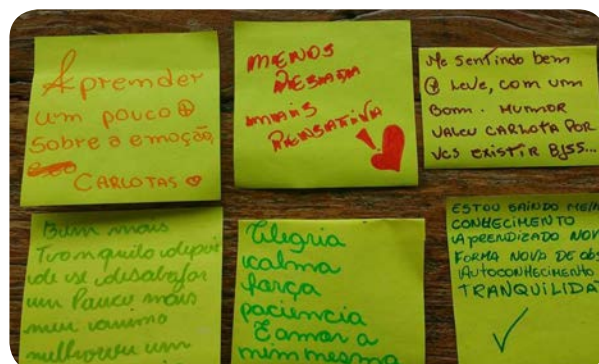 Aprender
um pouco ⊕
sobre a emoção,
CARLOTAS ♡
MENOS
MAIS
PENSATIVA
!
Me sentindo bem
⊕ leve, com um
Bom. HUMOR
VALEU CARLOTA POR
VCS EXISTIR BJSS...
Bem mais
Tranquilo depois
de se desabafar
um Pouco mais
meu animo
melhorou um
Alegria
calma
força
paciencia
E amor a
mim mesma
ESTOU SAINDO
CONHECIMENTO
APRENDIZADO
FORMA NOVA DE
AUTOCONHECIMENTO